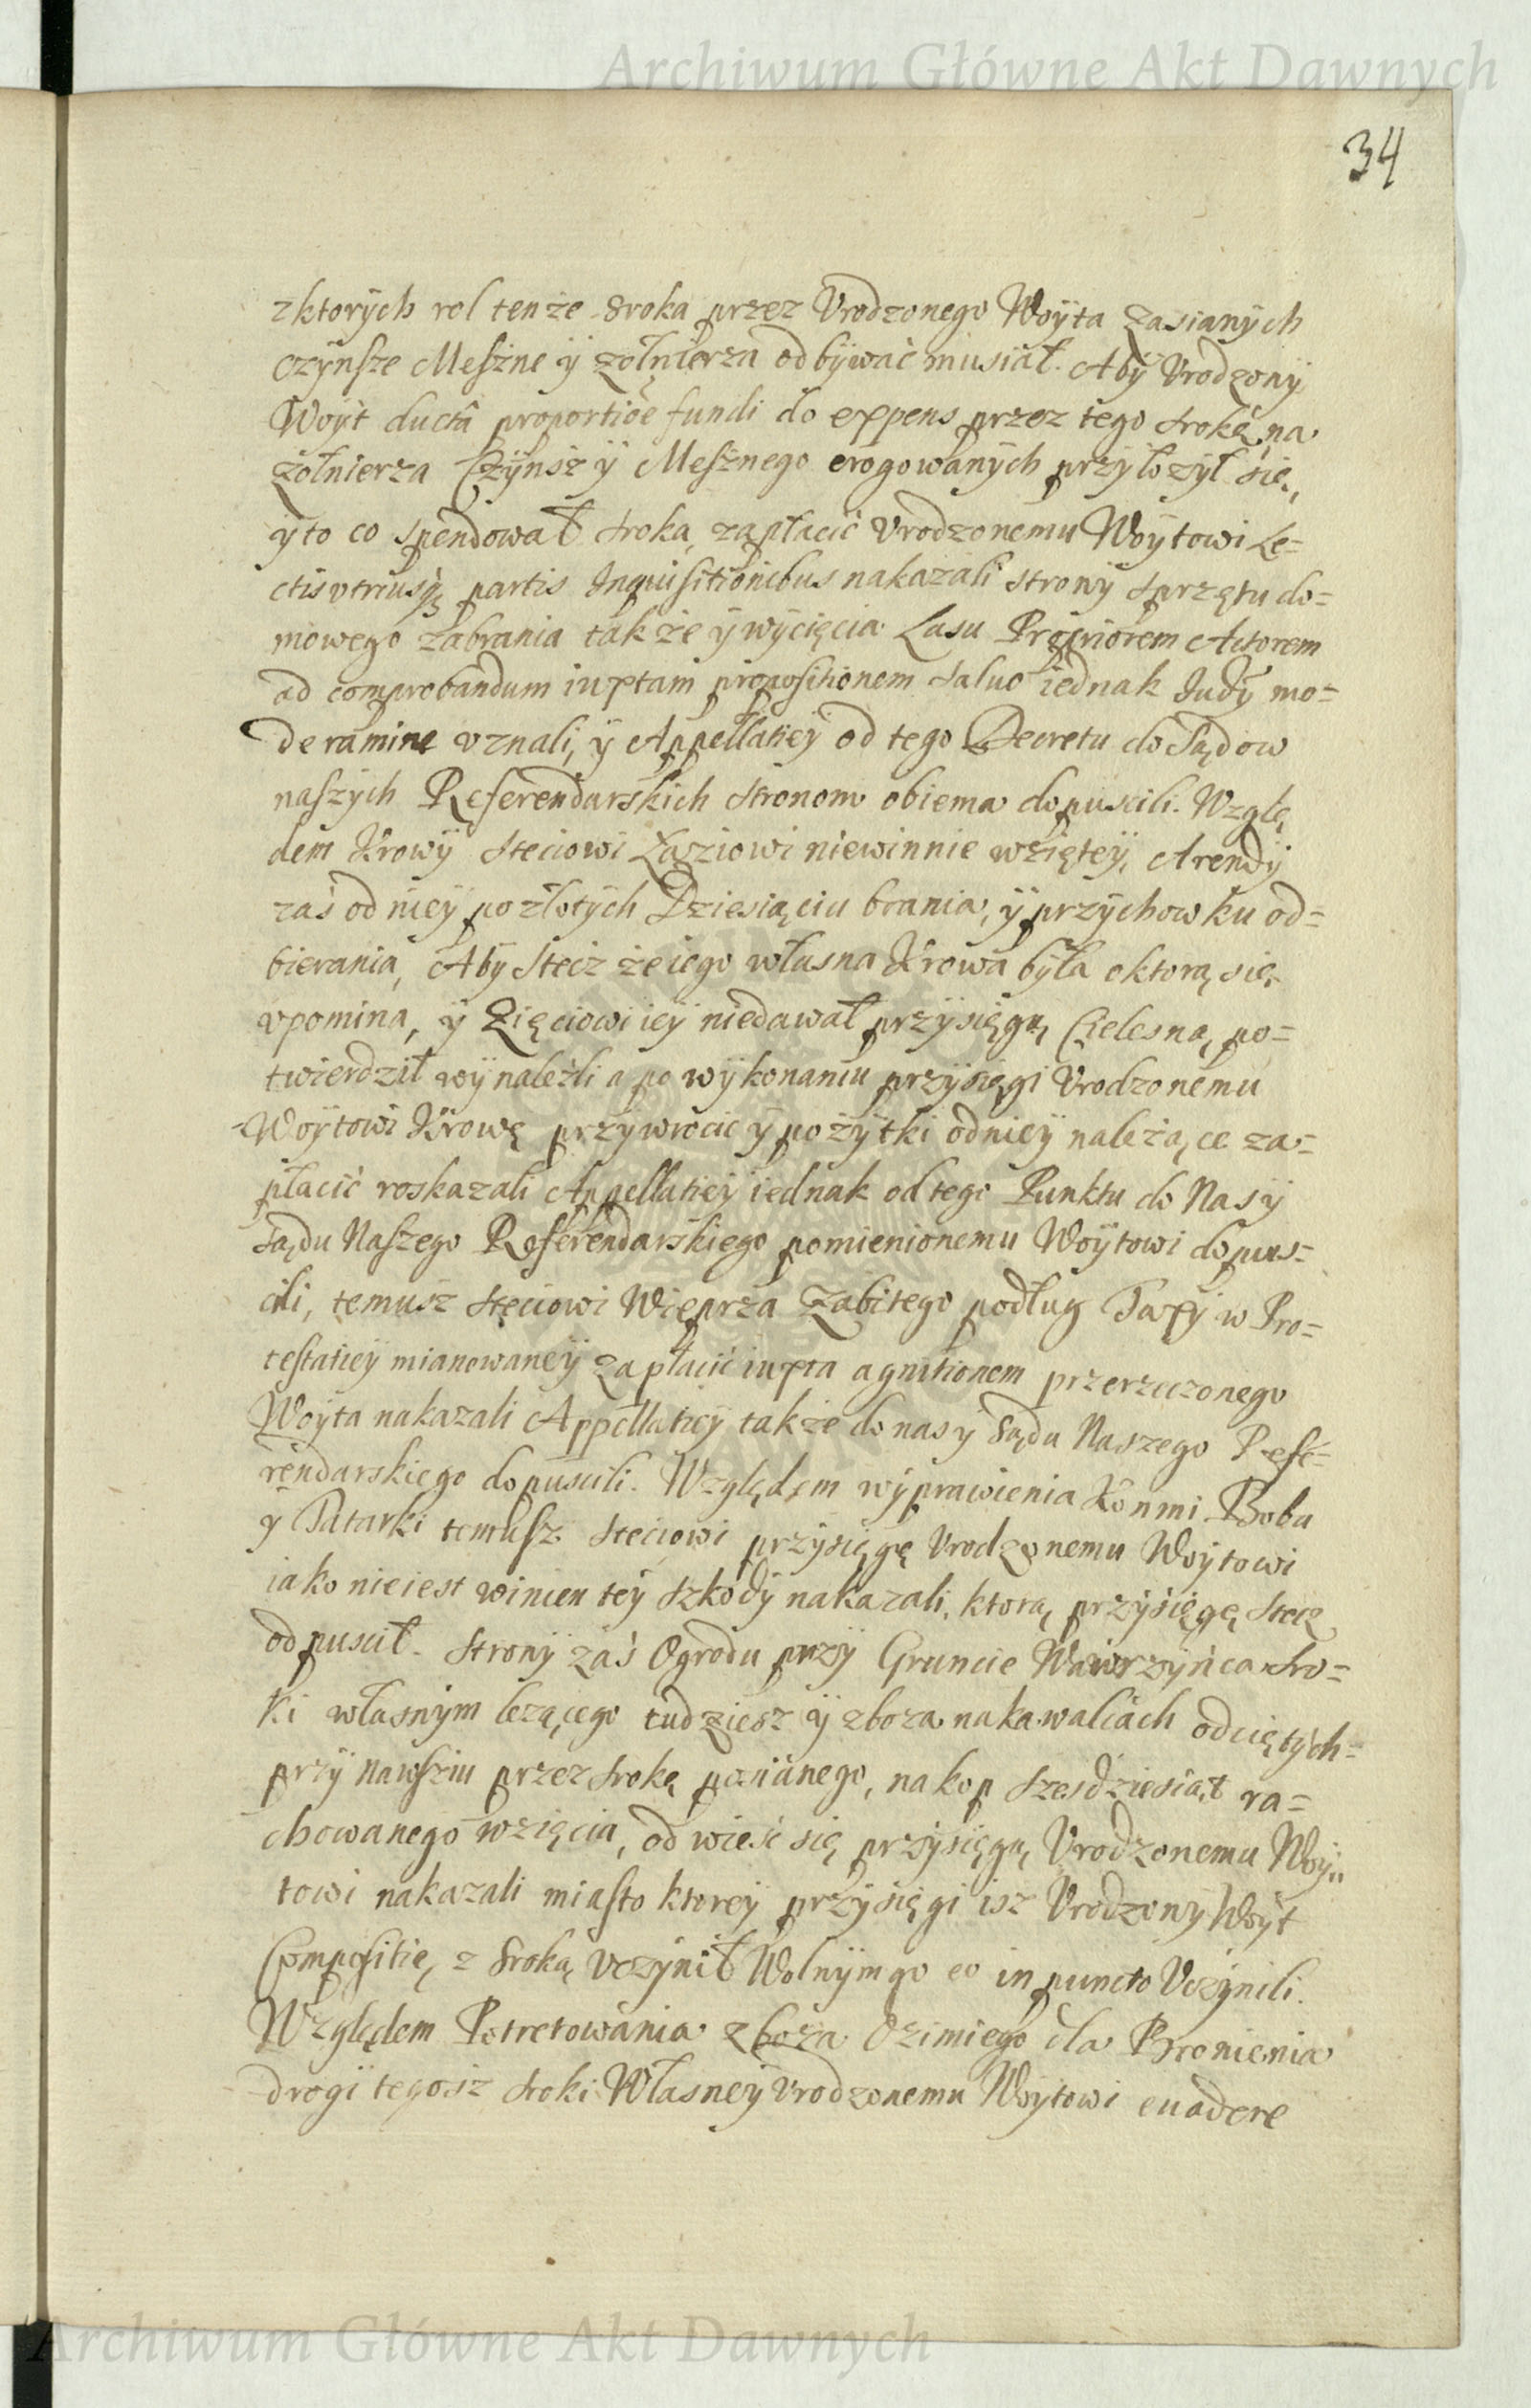 Archiwum Główne Akt Dawnych
34
z ktorych rol tenże Sroka przez Vrodzonego Woyta zasianych
czynsze Meszne y żołnierza odbywać musiał. Aby Vrodzony
Woyt ducta proportioe fundi do expens przez tego Srokę na
żołnierza Czynsz y Mesznego erogowanych przyłozył się,
y to co spendował Sroka, zapłacić Vrodzonemu Woytowi Le=
ctis vtriusq partis Inquisitionibus nakazali strony sprzętu do=
mowego zabrania także y wycięcia Lasu Propriorem Actorem
ad comprobandum iuxtam propositionem saluo iednak Iudy mo=
deramine vznali, y Appellatiey od tego Decretu do Sądow
naszych Referendarskich stronom obiema dopuscili. Wzglę
dem Krowy Steciowi niewinnie wziętey, Arendy
zaś od niey po złotych Dziesiąciu brania, y przychowku od=
bierania, Aby Stecz że iego własna Krowa była o ktorą się
vpomina, y Zięciowi iey niedawał przysięgą Cielesną po=
twierdził wynaleźli a po wykonaniu przysięgi Vrodzonemu
Woytowi Krowę przywrocic y pożytki odniey należące za=
płacić roskazali Appellatiey iednak od tego Punktu do Nas y
Sądu Naszego Referendarskiego pomienionemu Woytowi dopus=
cili, temusz Steciowi Wieprza zabitego podług Taxy w Pro=
testatiey mianowaney zapłacić iuxta agnitionem przerzeczonego
Woyta nakazali Appellatiey także do nas y Sądu Naszego Refe=
rendarskiego dopuscili. Względem wyprawienia Konmi Bobu
y Tatarki temusz Steciowi przysięgę Vrodzonemu Woytowi
iako nieiest winien tey szkody nakazali, ktorą przysięgę Stec
odpuscił. Strony zaś Ogrodu przy Gruncie Wawrzyńca Sro=
ki własnym lezącego tudziesz y zboza na kawalcach odciętych=
przy Nawsziu przez Srokę posianego, na kop szesdziesiąt ra=
chowanego wzięcia, odwieść się przysięgą Vrodzonemu Woy=
towi nakazali miasto ktorey przysięgi isz Vrodzony Woyt
Compositię z Sroką vczynił Wolnym go eo in puncto Vczynili.
Względem Potretowania zboza Ozimiego dla Bronienia
drogi tegosz Sroki Własney Vrodzonemu Woytowi euadere
Archiwum Główne Akt Dawnych